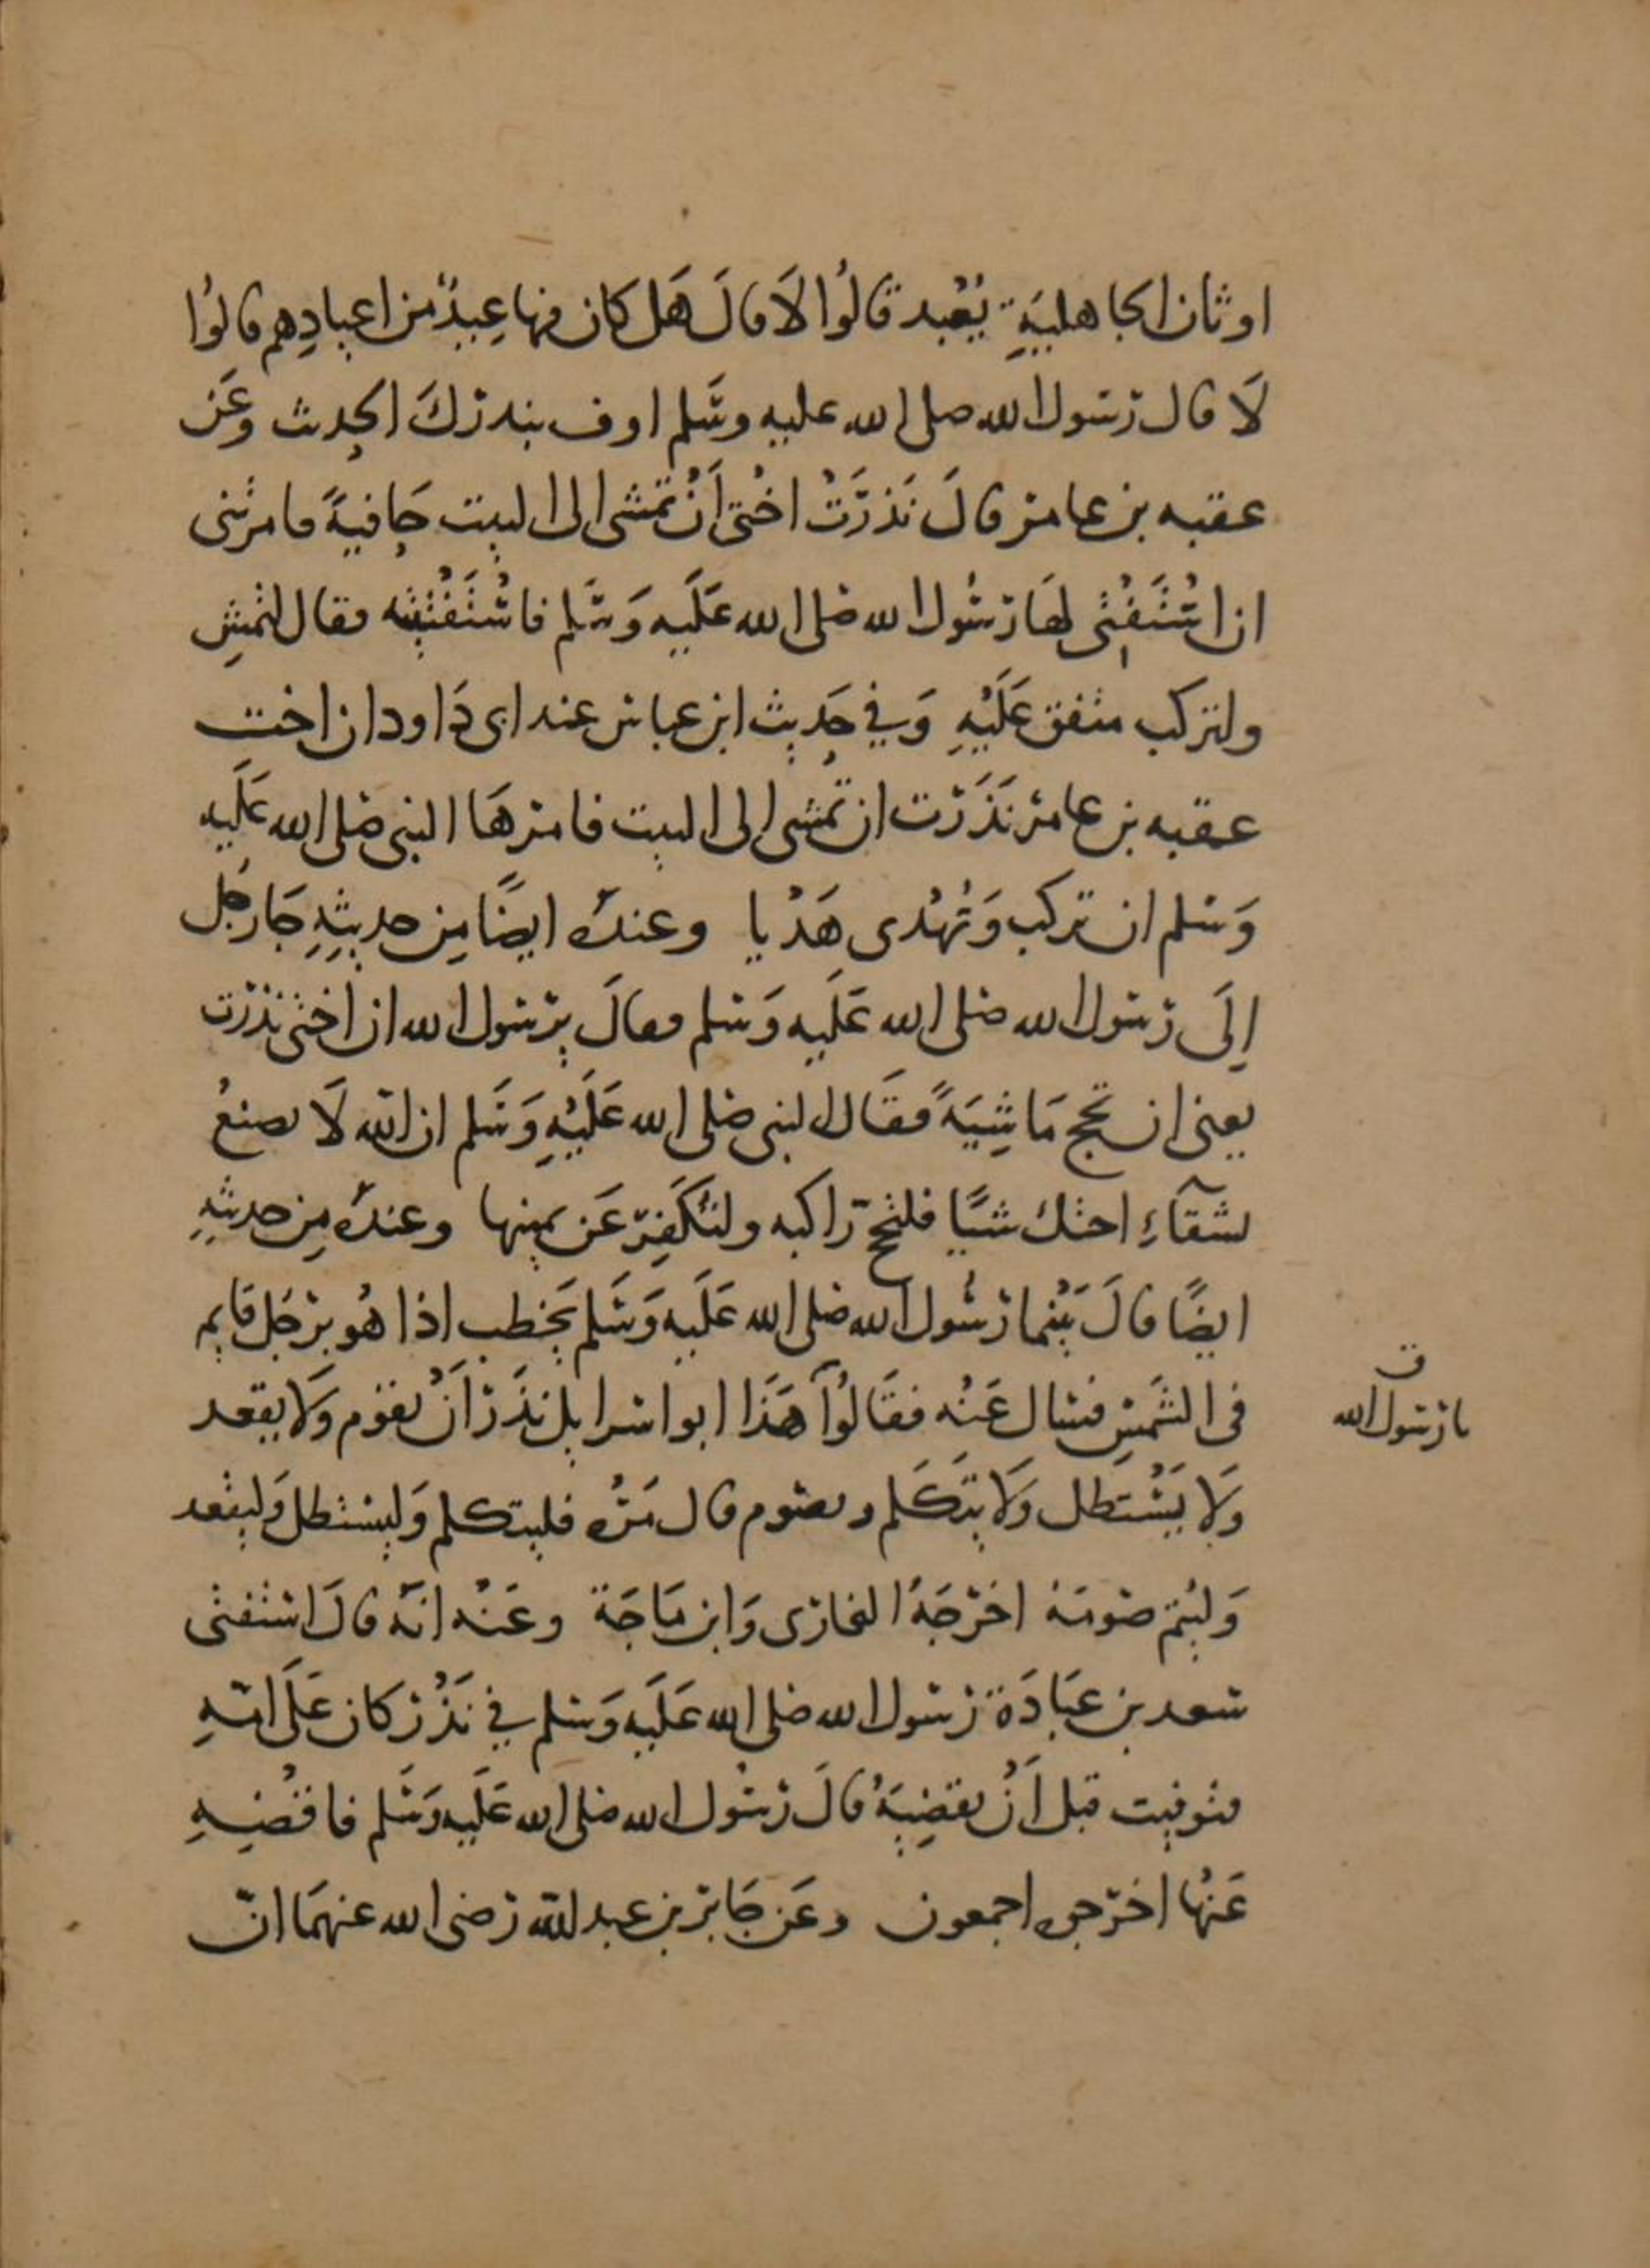 اوثان الجاهلية يُعْبد قالُوا لا قالَ هَل كان فيها عِيدٌ من اعيادِهم قالوُا
لَا قال رسول الله صلى الله عليه وسَلم اوف بنذركَ الحديث وعَن
عقبه بن عامر قالَ نَذرَتْ اختى اَنْ تمشى الى البيت حَافيةً فامرتنى
ان اسْتَفْتى لهَا رسُول الله صَلى الله عَلَيه وَسَلم فاسْتَفْتيته فقال لتمشِ
ولتركب متفق عَلَيْهِ وَفي حَديث ابن عباس عند ابى دَاود ان اخت
عقبه بن عامر نَذَرَت ان تمشى الى البيت فامرهَا النبى صَلى الله عَلَيه
وَسلم ان تركب وَتُهْدى هَدْيا وعندهُ ايضًا مِن حديثِهِ جَا رجُل
اِلَى رسول الله صَلى الله عَلَيه وَسلم فقالَ يرسول الله ان اختى نذرت
يعنى ان تحج مَاشِيَةً فقَال النبى صَلى الله عَلَيْهِ وَسَلم ان الله لَا يصنعُ
بشقآءِ اختك شيًا فلتحج راكبه ولتُكَفِرّ عَن يمينها وعندهُ مِن حديثهِ
ايضًا قالَ بَيْنما رسُول الله صَلى الله عَلَيه وَسَلم يَخطب اذا هُو برجُل قايم
فى الشمَسِ فسال عَنْه فقَالُوآ هَذَا ابو اسرايل نذَر اَنْ يقوم وَلا يقعد
وَلا يَسْتَظل وَلا يتَكَلم ويصوم قال مُرْهُ فليتكلم وَليستظل وَليقعد
وَليُتم صَومَهُ اخرَجَهُ البخارى وَابن مَاجَة وعَنْه انهُ قالَ استفتى
سعد بن عبَادَة رسول الله صَلى الله عَلَيه وَسلم في نَذْر كان عَلَى امهِ
فتوفيت قبل اَنْ يقضِيَهُ قالَ رسُول الله صَلى الله عَلَيه وَسَلم فاقضِهِ
عَنْها اخرجه اجمعون وعَن جَابر بن عبد الله رضى الله عنهمَا انّ
ق
يا رسول الله